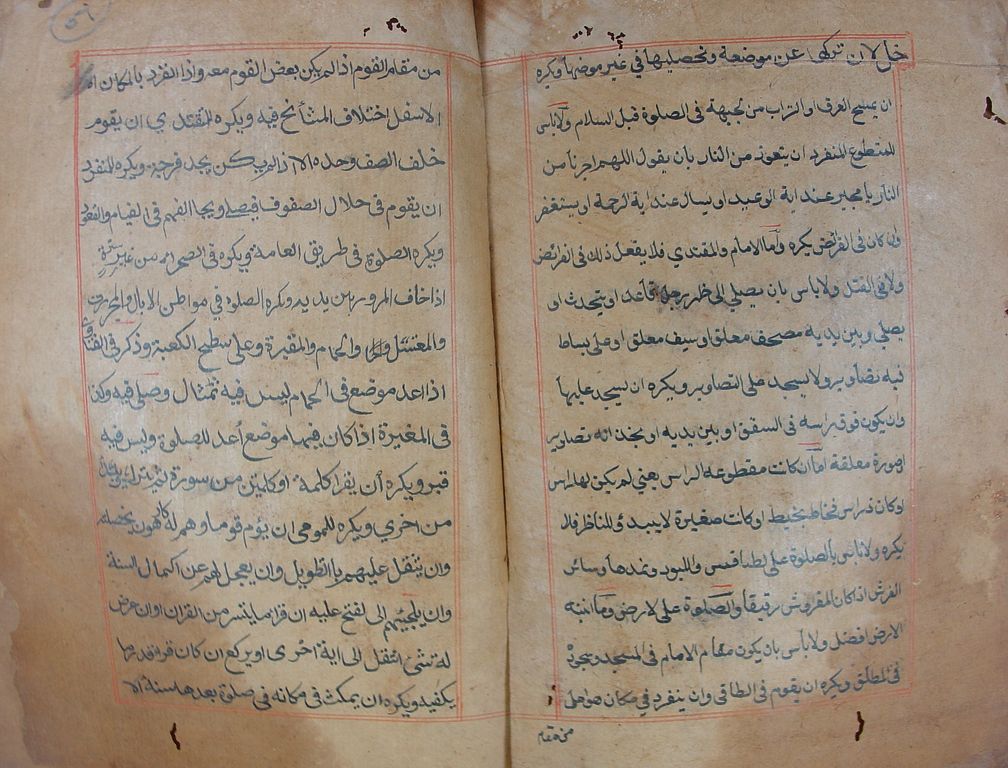 خل لان تركها عن موضعه وتحصيلها في غير موضعها ويكره
ان يمسح العرق او التراب من لجبهة فى الصلوة قبل السلام ولاباس
للمتطوع المنفرد ان يتعوذ من النار بان يقول اللهم اجرنا من
النار يا مجير عند اية الوعيد او يسال عند اية الرحمة او يستغفر
وان كان فى الفرائض يكره واما الامام والمقتدي فلا يفعل ذلك فى الفرائض
ولا فى النفل ولا باس بان يصلي الى ظهر رجل قاعد او يتحدث او
يصلي وبين يديه مصحف معلق او سيف معلق او على بساط
فيه تصاوير ولا يسجد على التصاوير ويكره ان يسجد عليها
وان يكون فوق راسه فى السقف او بين يديه او بحذائه تصاوير
او صورة معلقة اما ان كانت مقطوعه الراس يعني لم يكن لها راس
او كان راس بخيط او كانت صغيرة لا يبدو للناظر فلا
يكره ولا باس بالصلوة على لطنافس واللبود وسائر
الفرش اذا كان المفروش رقيقا والصلوة على لارض وما انبته
الارض افضل ولا باس بان يكون مقام الامام فى المسجد وسجوده
فى لطاق ويكره ان يقوم فى الطاق وان ينفرد في مكان هو اعلى
من مقام
٥٦
من مقام القوم اذا لم يكن بعض القوم معه واذا انفرد بالمكان
الاسفل اختلاف المشائخ فيه ويكره للمقتدي ان يقوم
خلف الصف وحده الا اذا لم يكن يجد فرجة ويكره للمنفرد
ان يقوم فى خلال الصفوف فيصلي ويخالفهم فى القيام والقعود
ويكره الصلوة فى طريق العامة ويكره فى الصحراء من غير سترة
اذا خاف المرور بين يديه ويكره الصلوة في مواطن الابل
والمغتسل والحمام والمقبرة وعلى سطح الكعبة وذكر فى الفتاوى
اذا اعد موضع فى الحمام ليس فيه تمثال وصلى فيه وكذا
فى المقبرة اذا كان فيها موضع اعد للصلوة وليس فيه
قبر ويكره أن يقرا كلمة او كلمتين من سورة ثم يترك
من اخري ويكره للمومى ان يؤم قوما وهم له كارهون
وان يثقل عليهم بالتطويل وان يعجلهم عن اكمال السنة
وان يلجئهم الى لفتح عليه ان قرا ما يتيسر من القران وان عرض
له شئ انتقل الى اية اخرى او يركع ان كان قرا قدر ما
يكفيه ويكره ان يمكث فى مكانه فى صلوة بعدها سنة الا